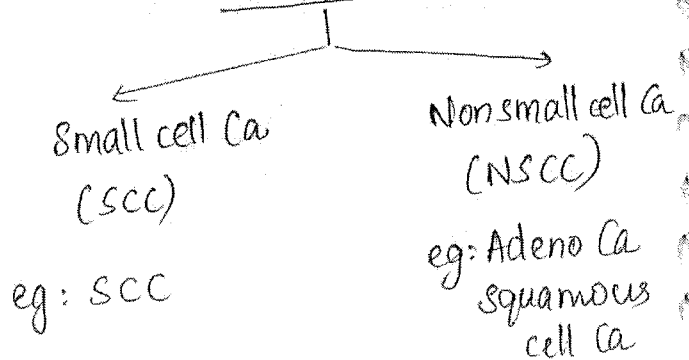 Small cell Ca
(SCC)
eg: SCC
Nonsmall cell Ca
(NSCC)
eg: Adeno Ca
squamous
cell Ca